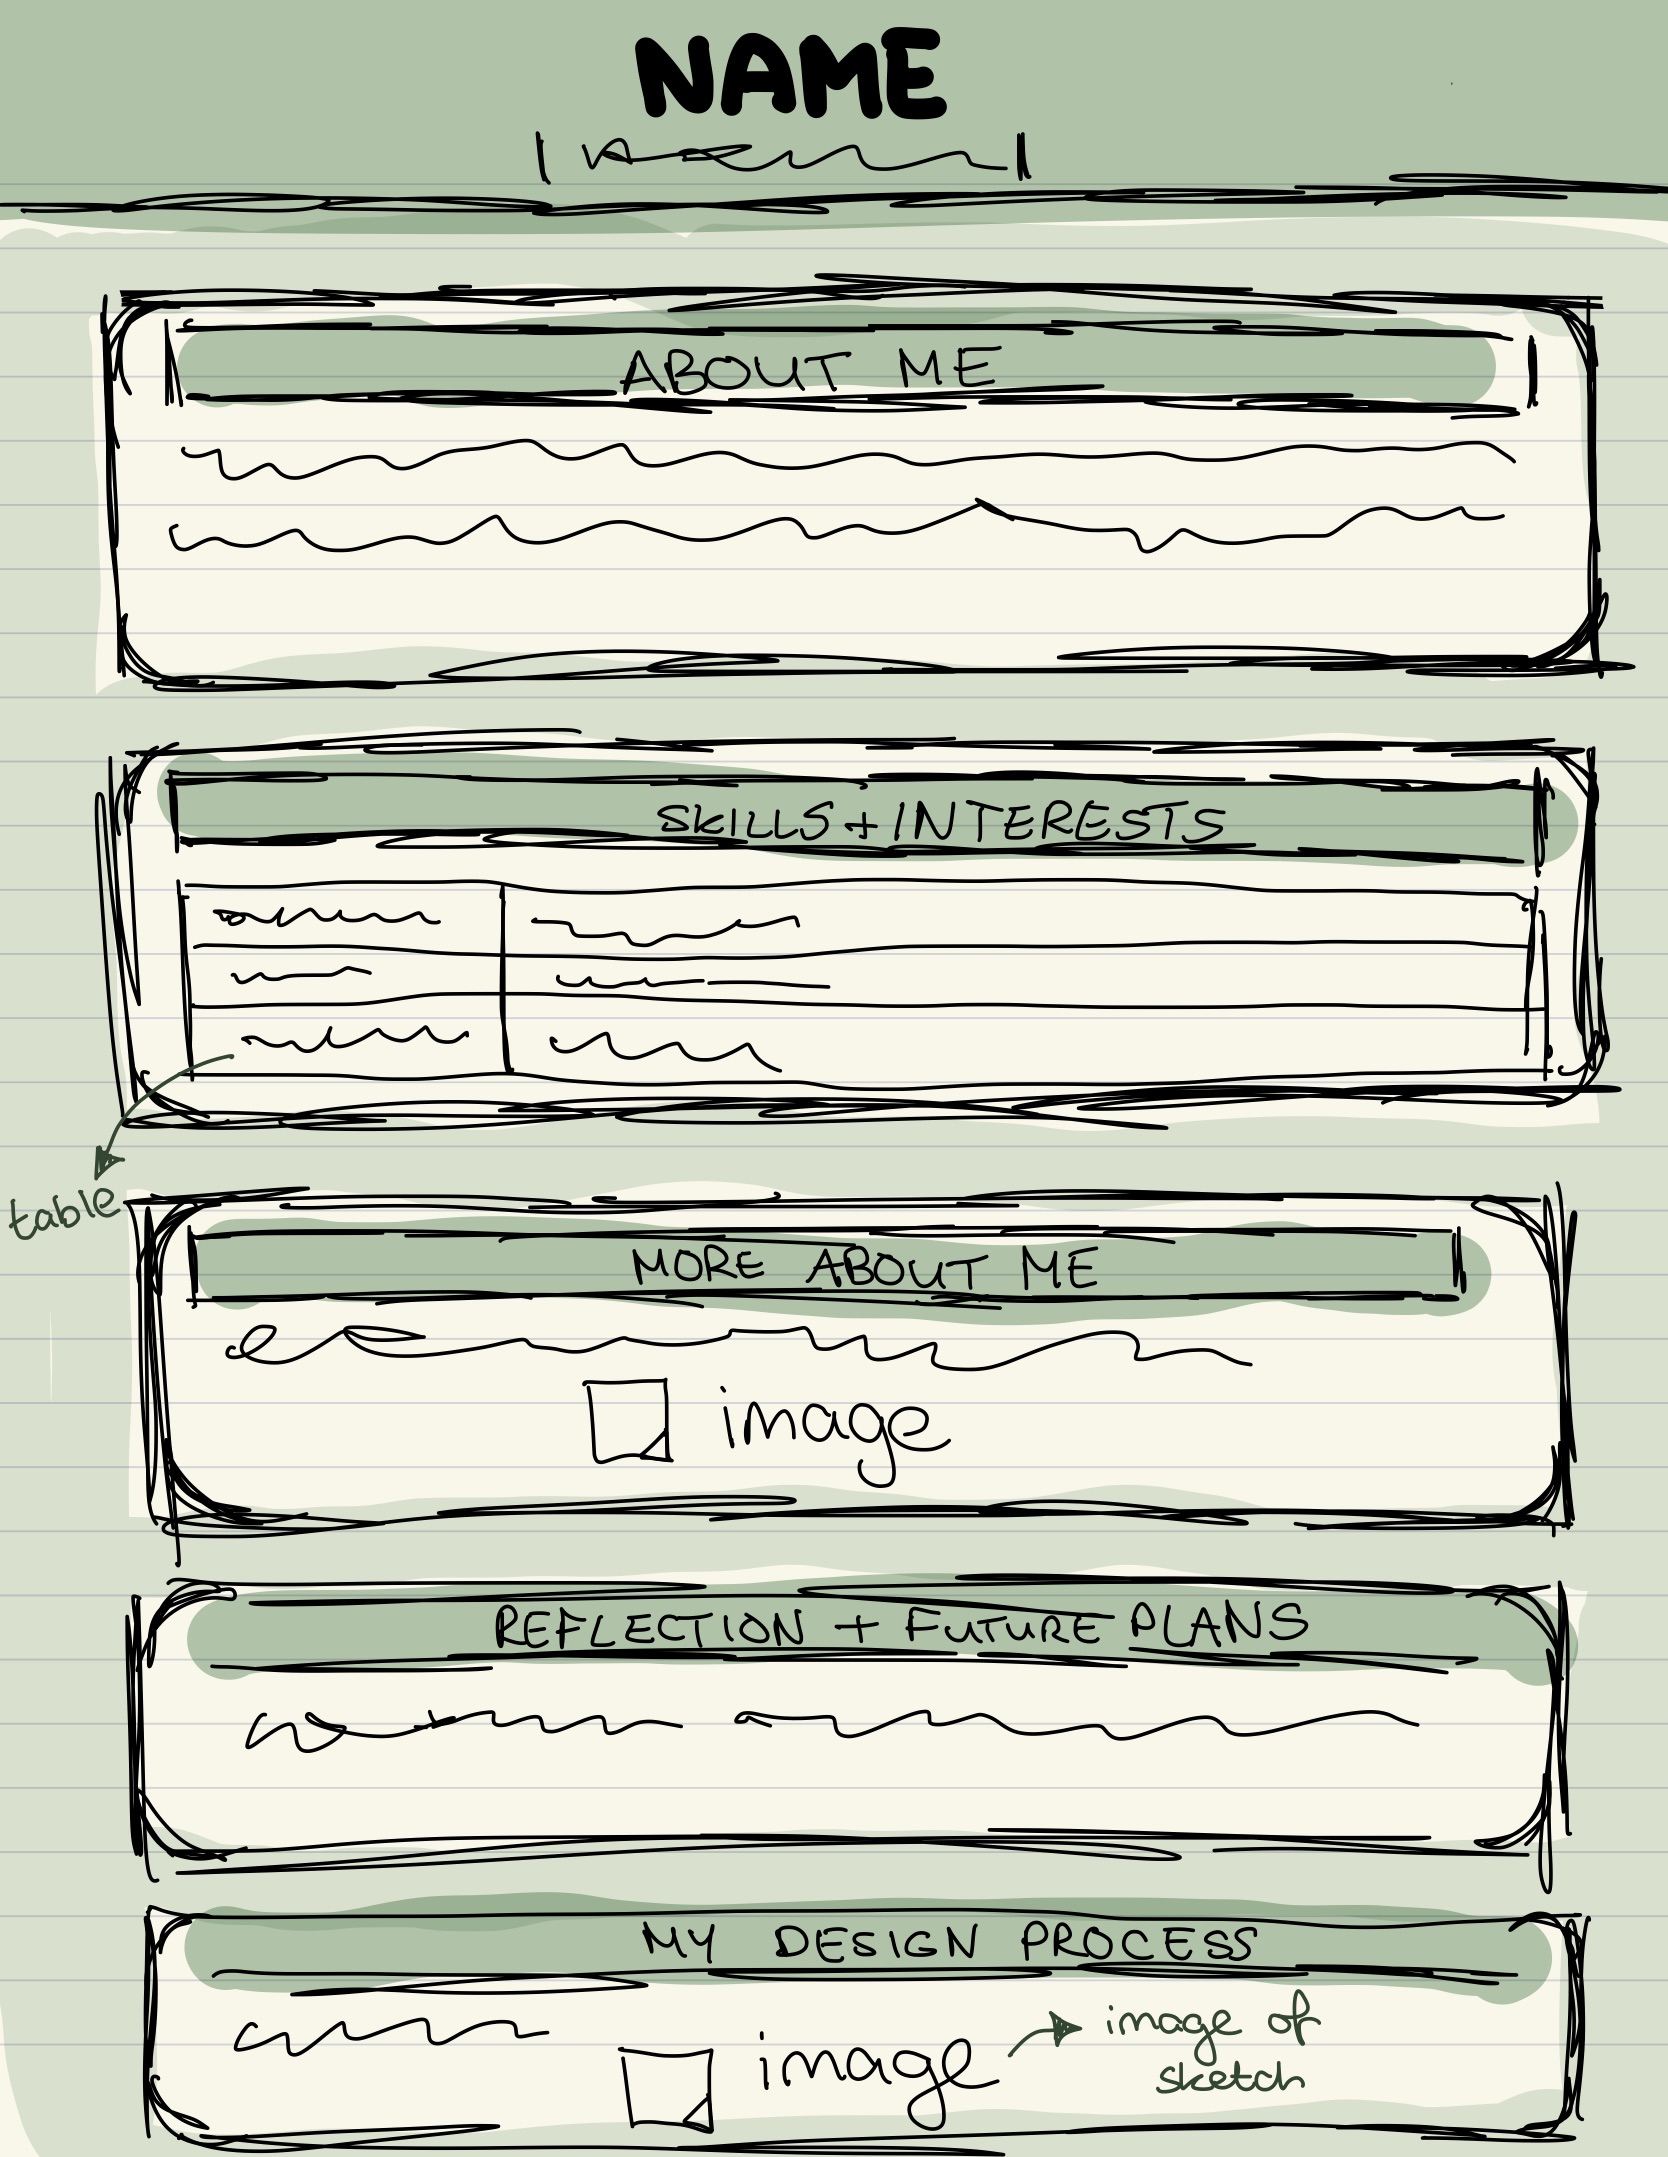 NAME
ABOUT ME
SKILLS + INTERESTS
table
MORE ABOUT ME
image
REFLECTION + FUTURE PLANS
MY DESIGN PROCESS
image
image of
sketch